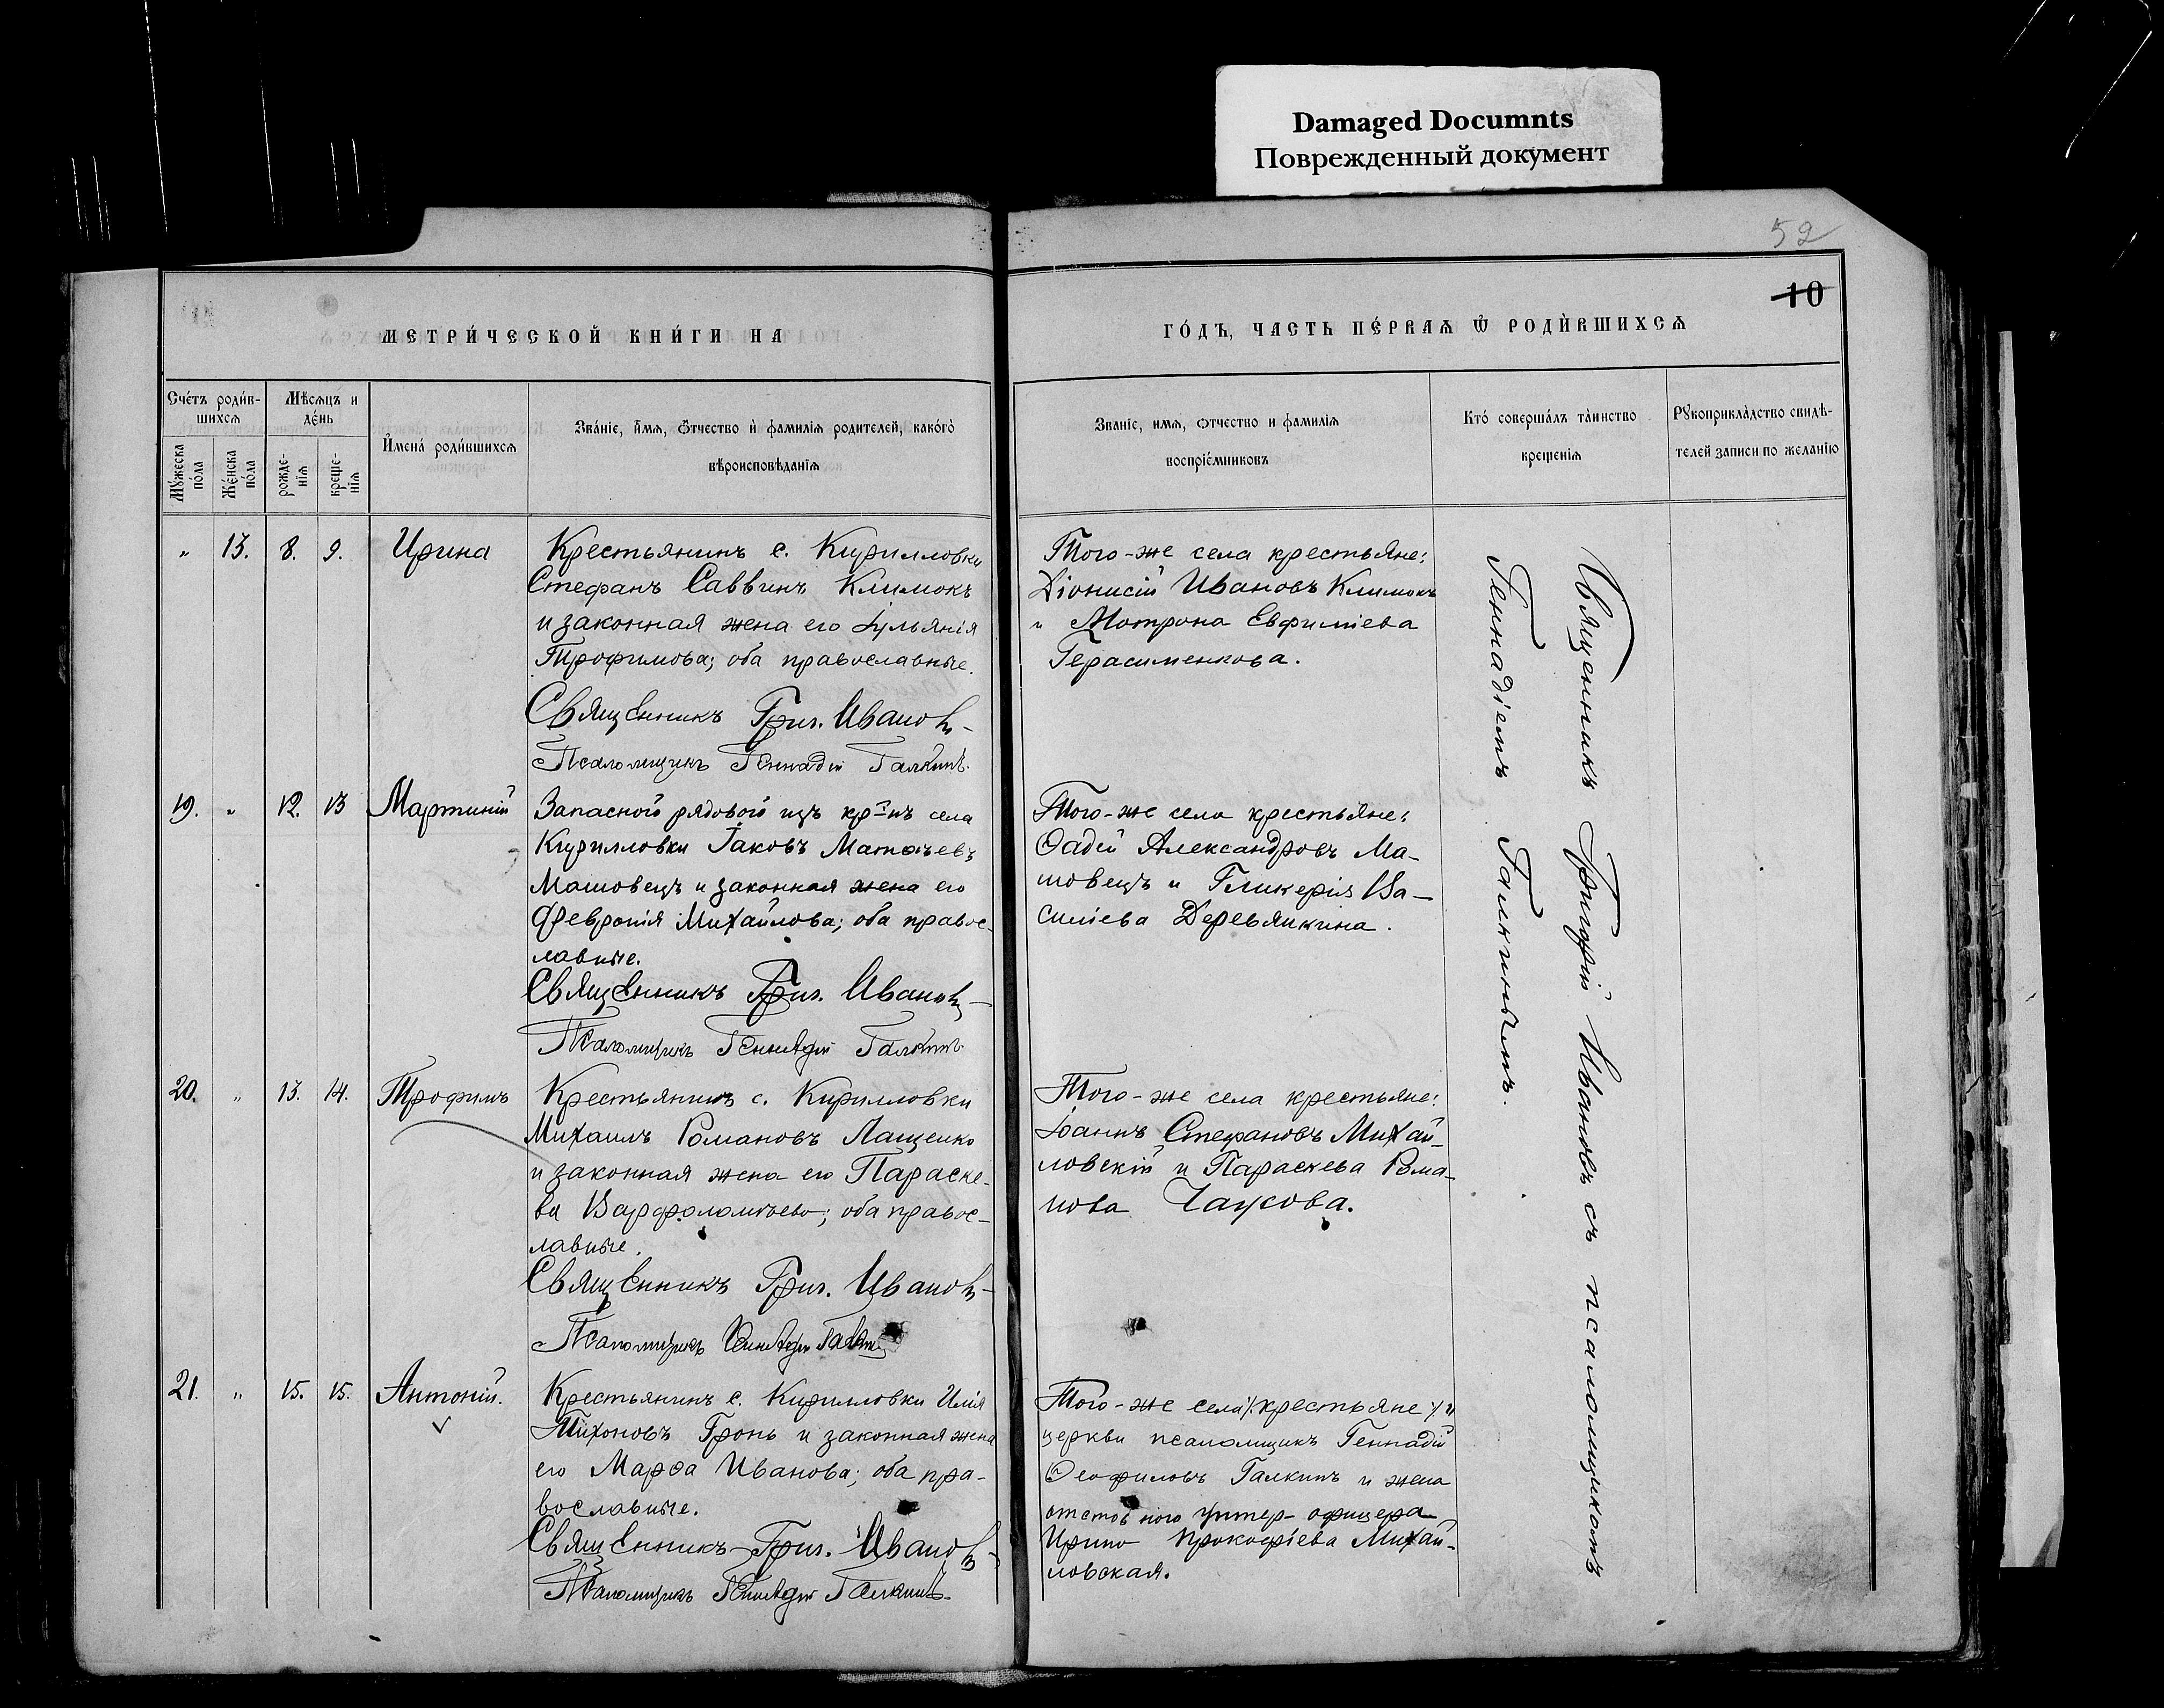 Damaged Documnts
Поврежденный документ
52
10
МЕТРИ́ЧЕСКОЙ КНИ́ГИ НА
ГО́ДЪ, ЧАСТЬ ПЕ́РВАѦ Ѿ РОДИ́ВШИХСѦ
Счётъ роди́в-
шихсѧ
Мѣсѧцъ и
де́нь
Му́жеска
по́ла
Же́нска
по́ла
рожде-
нїѧ
креще-
нїѧ
И҆мена̀ роди́вшихсѧ
Зва́нїе, и҆́мѧ, ѻ҆́тчество и҆ фами́лїѧ родителей, како́гѡ
вѣроисповѣданїѧ
Званїе, имѧ, ѻтчество и фамилїѧ
воспрїе́мниковъ
Кто̀ соверша́лъ та́инство
крещенїѧ
Рꙋкоприкла́дство свидѣ-
телей записи по желанїю
" 13. 8. 9. Ирина
Крестьянинъ с. Кирилловки
Стефанъ Саввинъ Климокъ
и законная жена его Іульянія
Трофимова; оба православные.
Священникъ Григ. Ивановъ
Псаломщикъ Геннадій Галкинъ.
Того-же села крестьяне:
Діонисій Ивановъ Климокъ
и Мотрона Евфиміева
Герасименкова.
19. " 12. 13 Мартиній
Запасной рядовой изъ кр-нъ села
Кирилловки Іаковъ Матѳеевъ
Машовецъ и законная жена его
Февронія Михайлова; оба правос-
лавные.
Священникъ Григ. Ивановъ
Псаломщикъ Геннадій Галкинъ.
Того-же села крестьяне:
Ѳадей Александровъ Ма-
шовецъ и Гликерія Ва-
силіева Деревянкина.
20. " 13. 14. Трофимъ
Крестьянинъ с. Кирилловки
Михаилъ Романовъ Лащенко
и законная жена его Параске-
ва Варфоломѣева; оба правос-
лавные.
Священникъ Григ. Ивановъ
Псаломщикъ Геннадій
Того-же села крестьяне:
Іоаннъ Стефановъ Михай-
ловскій и Параскева Рома-
нова Чаусова.
21. " 15. 15. Антоній.
Крестьянинъ с. Кирилловки Илія
Тихоновъ Гронь и законная жена
его Марѳа Иванова; оба пра-
вославные.
Священникъ Григ. Ивановъ
Псаломщикъ Геннадій Галкинъ.
Того-же села /:крестьяне:/ и
церкви псаломщикъ Геннадій
Ѳеофиловъ Галкинъ и жена
отставного унтер-офицера
Ирина Прокофіева Михай-
ловская.
Священникъ Григорій Ивановъ съ псаломщикомъ
Геннадіемъ Галкинымъ.